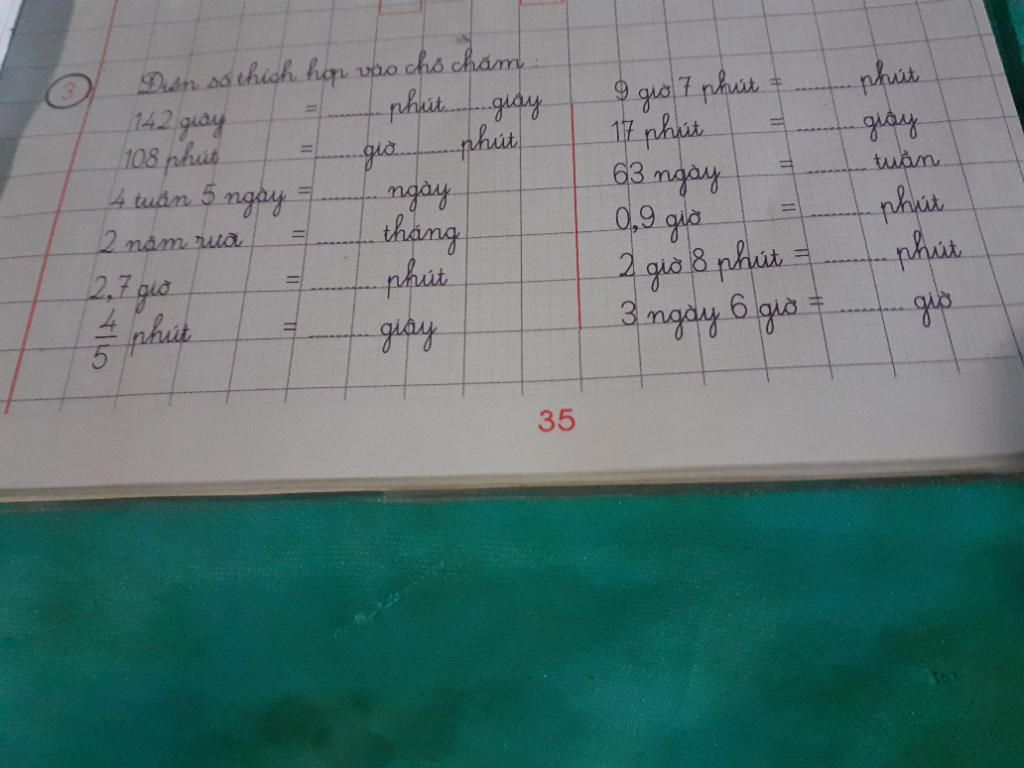 3 Điền số thích hợp vào chỗ chấm:
142 giây = ........ phút ...... giây
108 phút = ........ giờ ........ phút
4 tuần 5 ngày = ........ ngày
2 năm rưỡi = ........ tháng
2,7 giờ = ........ phút
4/5 phút = ........ giây
9 giờ 7 phút = ........ phút
17 phút = ........ giây
63 ngày = ........ tuần
0,9 giờ = ........ phút
2 giờ 8 phút = ........ phút
3 ngày 6 giờ = ........ giờ
35